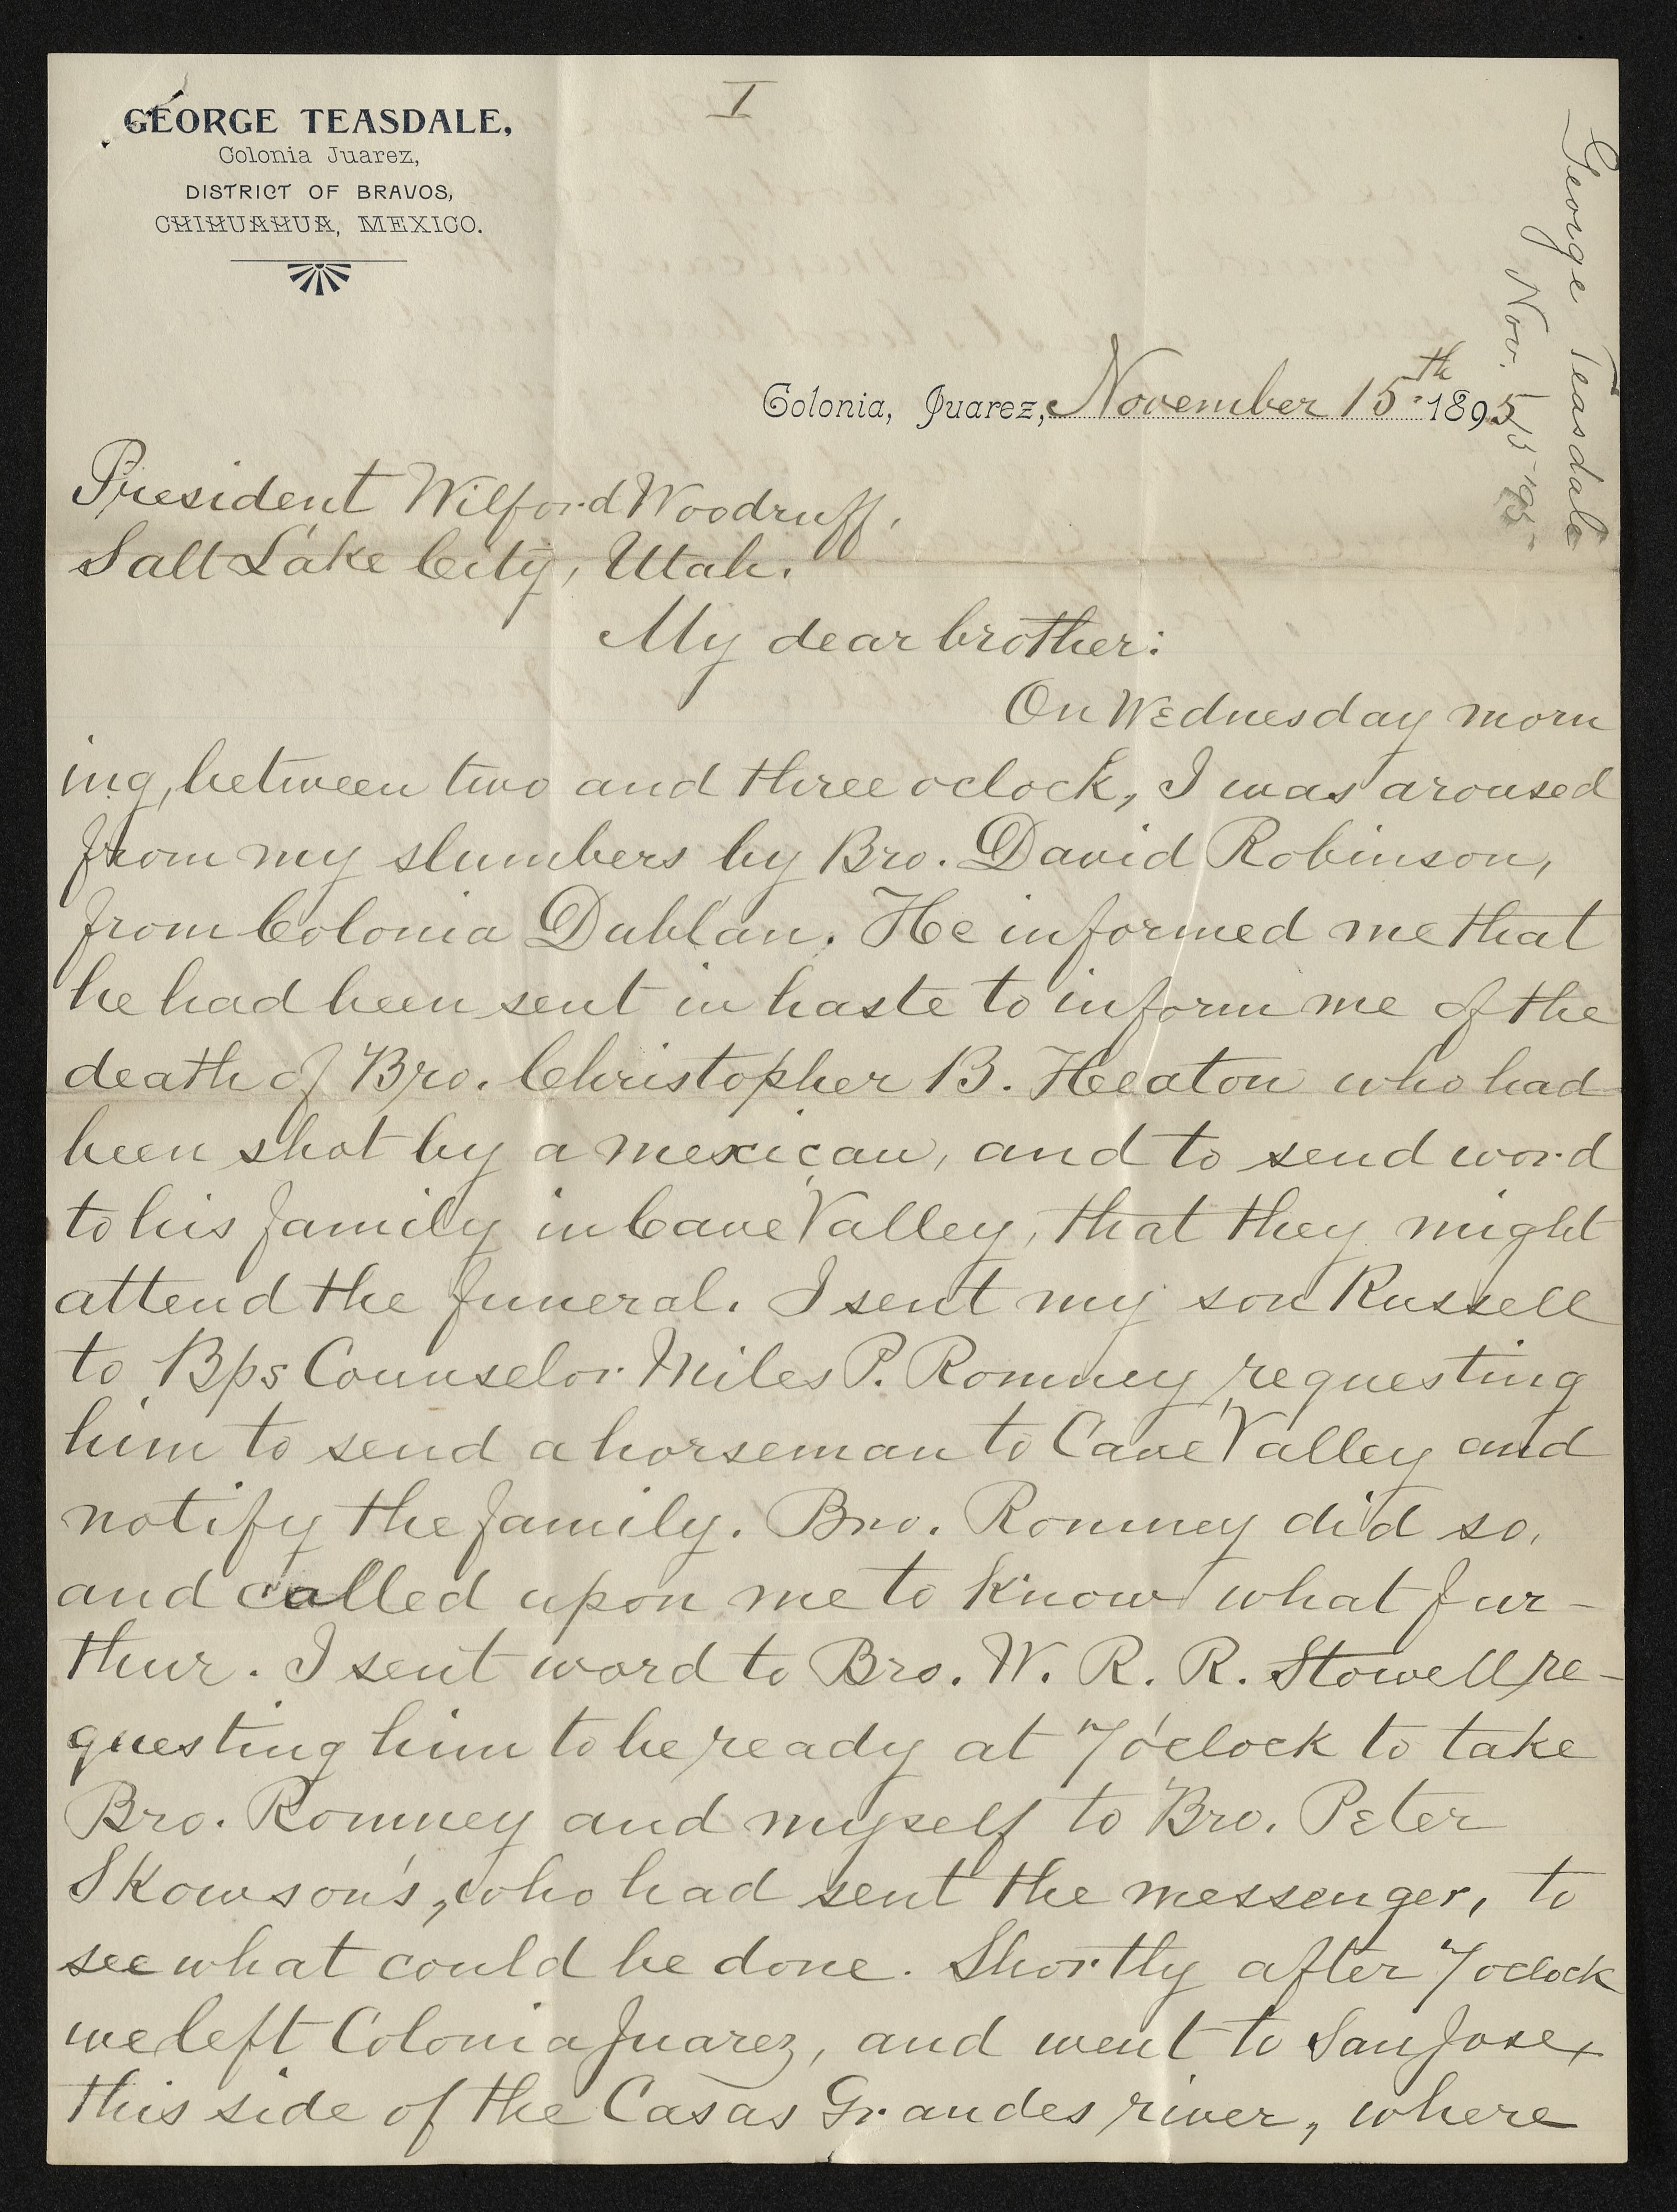 I
GEORGE TEASDALE,
Colonia Juarez,
DISTRICT OF BRAVOS,
CHIHUAHUA, MEXICO.
George Teasdale
Nov. 15 '95
Colonia, Juarez, November 15th 1895
President Wilford Woodruff,
Salt Lake City, Utah.
My dear brother:
On Wednesday morn
ing, between two and three oclock, I was aroused
from my slumbers by Bro. David Robinson,
from Colonia Dublan. He informed me that
he had been sent in haste to inform me of the
death of Bro. Christopher B. Heeaton who had
been shot by a mexican, and to send word
to his family in Cave Valley, that they might
attend the funeral. I sent my son Russell
to Bps Counselor Miles P. Romney requesting
him to send a horseman to Cave Valley and
notify the family. Bro. Romney did so,
and called upon me to know what fur-
thur. I sent word to Bro. W. R. R. Stowell re-
questing him to be ready at 7 o'clock to take
Bro. Romney and myself to Bro. Peter
Skowson's, who had sent the messenger, to
see what could be done. Shortly after 7 oclock
we left Colonia Juarez, and went to San Jose,
this side of the Casas Grandes river, where